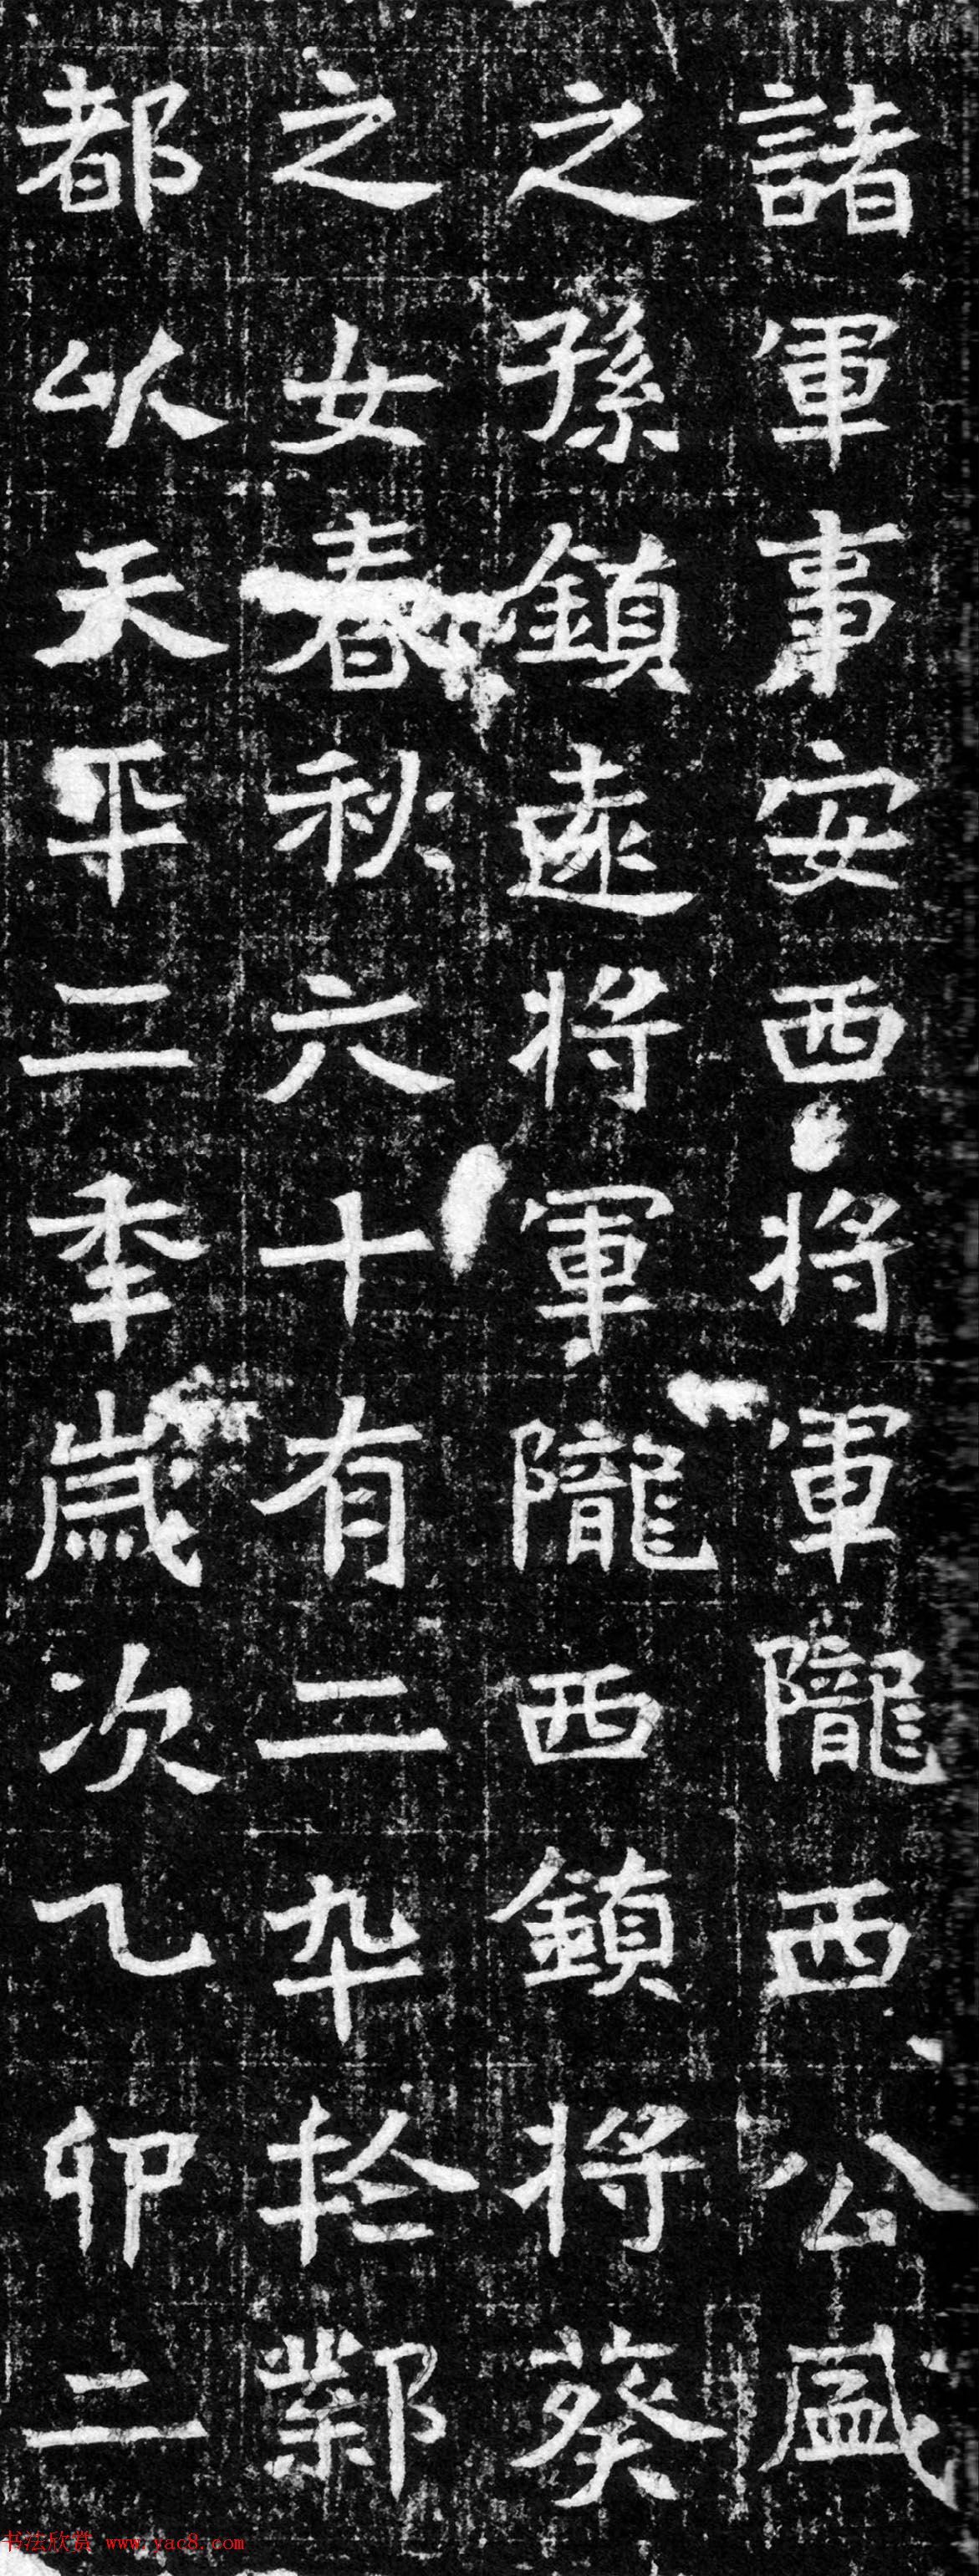 諸軍事安西將軍隴西公盛
之孫鎮遠將軍隴西鎮將葵
之女春秋六十有二卒於鄴
都以天平二年歲次乙卯二
书法欣赏 www.yac8.com